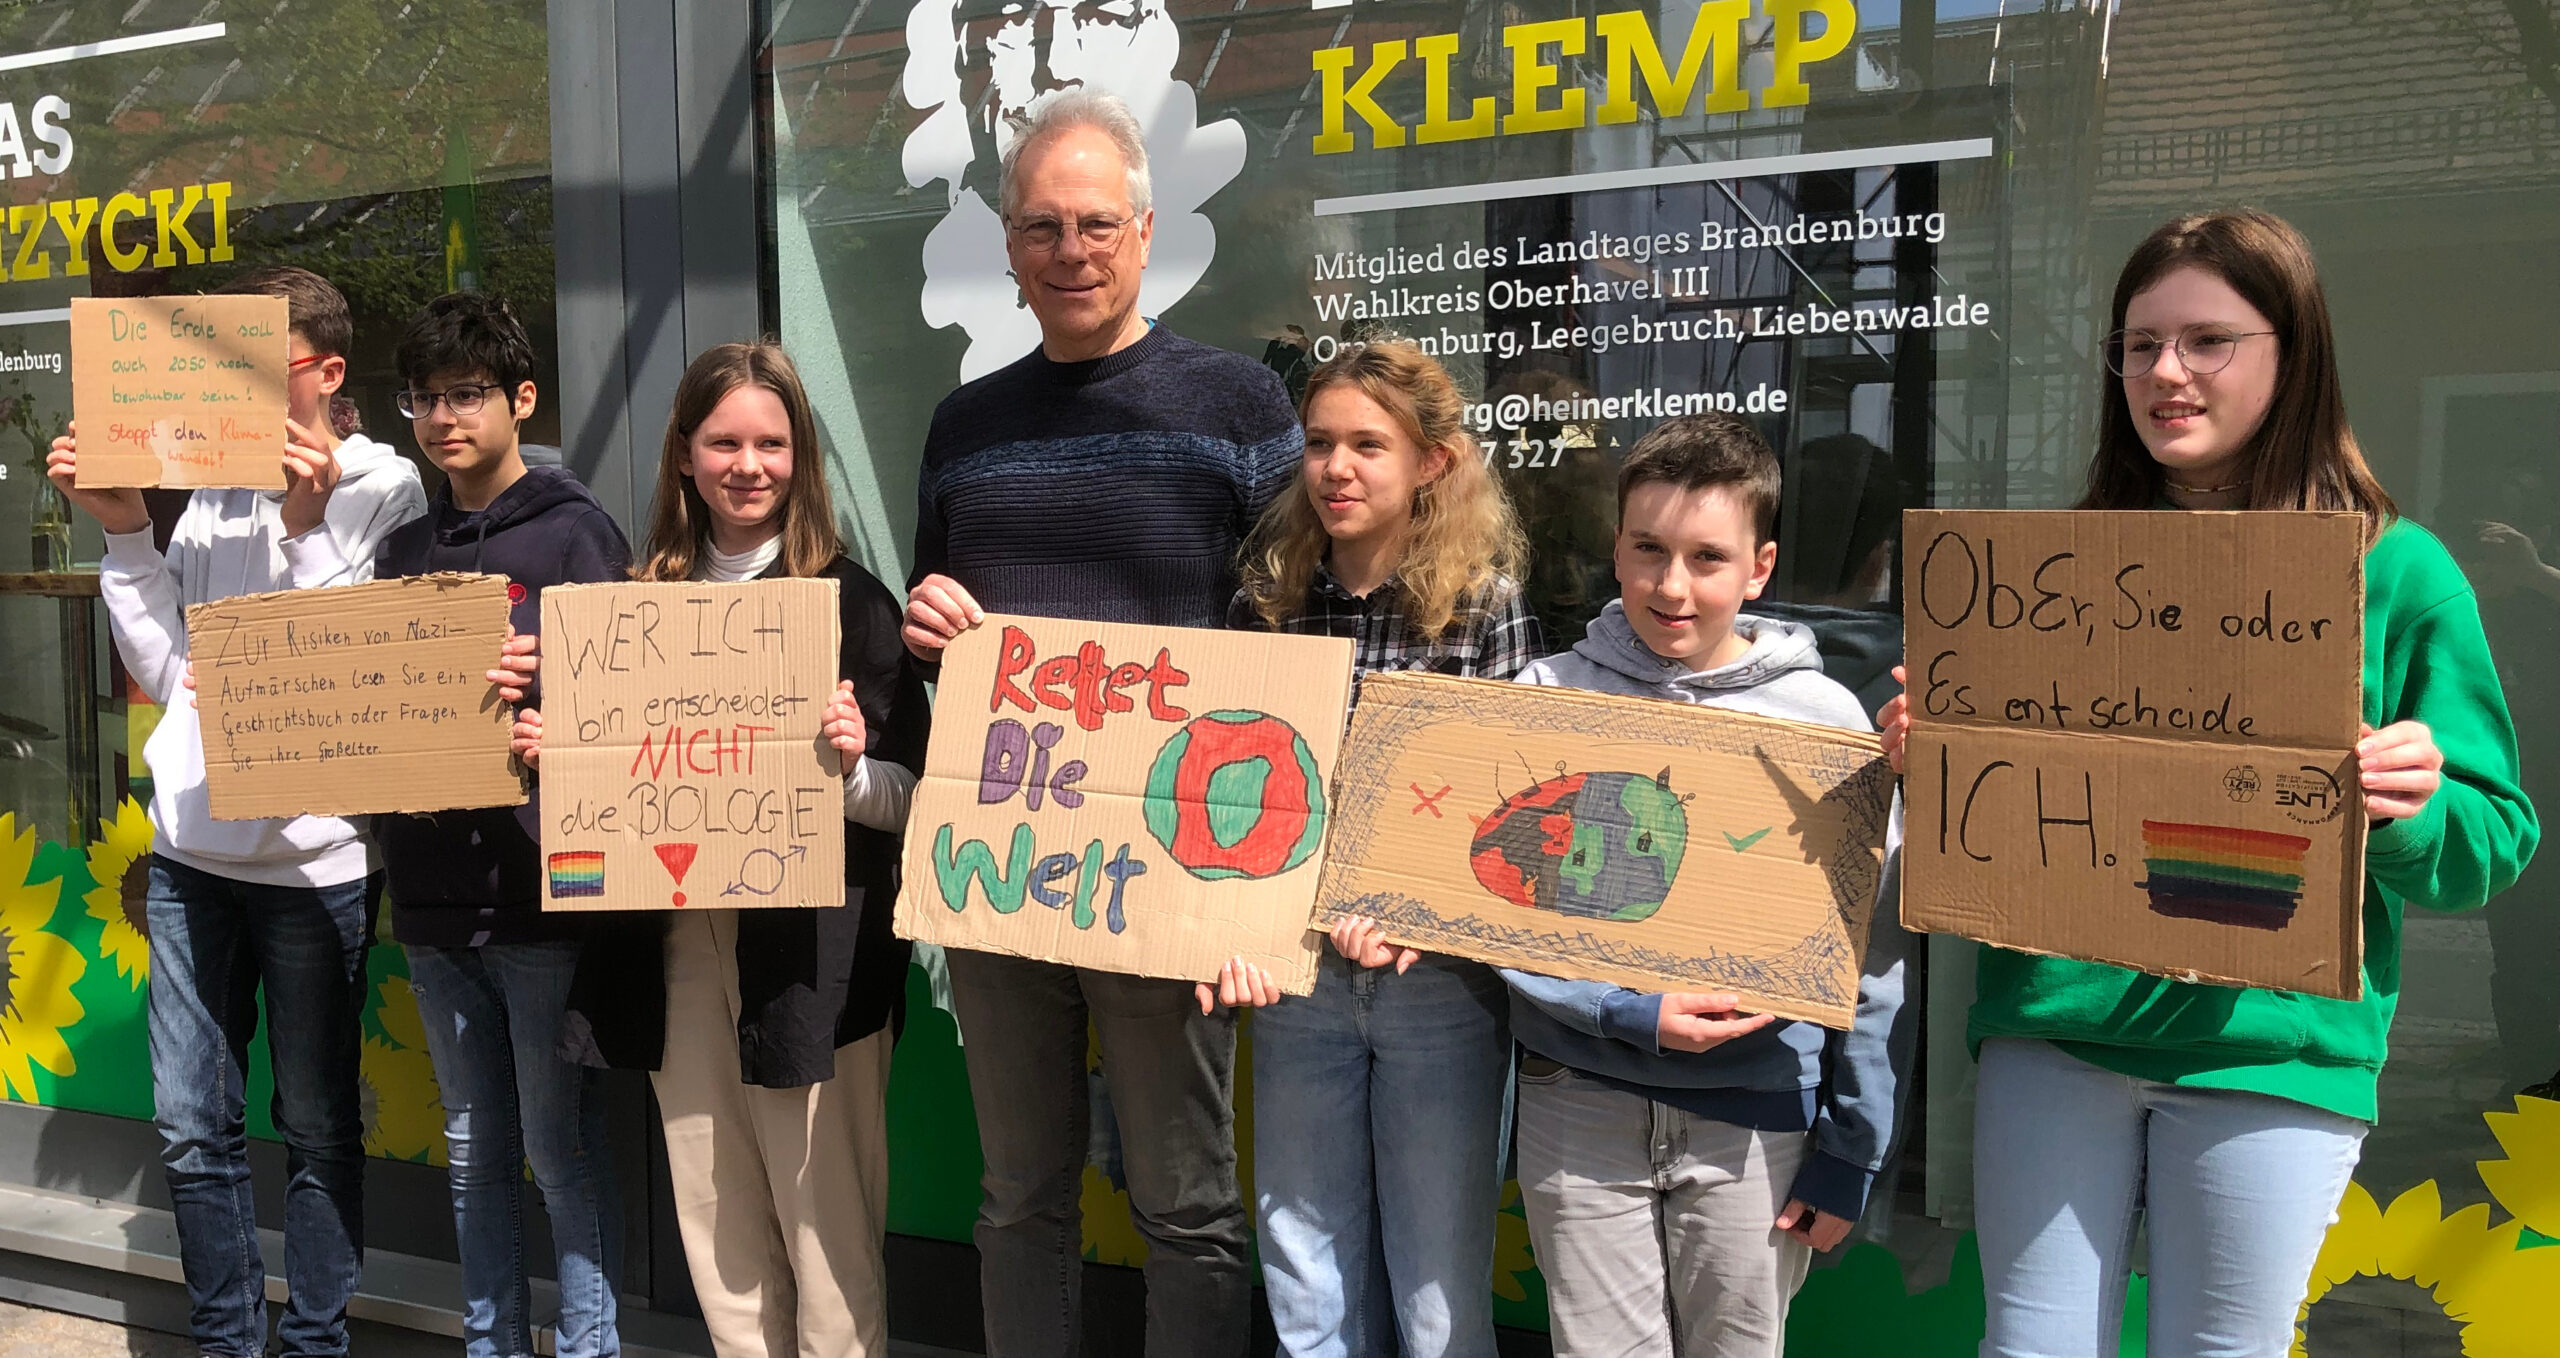 AS
IZYCKI
denburg
e
KLEMP
Mitglied des Landtages Brandenburg
Wahlkreis Oberhavel III
Oranienburg, Leegebruch, Liebenwalde
rg@heinerklemp.de
7 327
Die Erde soll
auch 2050 noch
bewohnbar sein!
Stoppt den Klima-
wandel!
Zur Risiken von Nazi-
Aufmärschen lesen Sie ein
Geschichtsbuch oder Fragen
Sie ihre Großelter.
WER ICH
bin entscheidet
NICHT
die BIOLOGIE
Rettet
Die
Welt
ObEr, Sie oder
Es entscheide
ICH.
RESY
LINE
PERFORMANCE